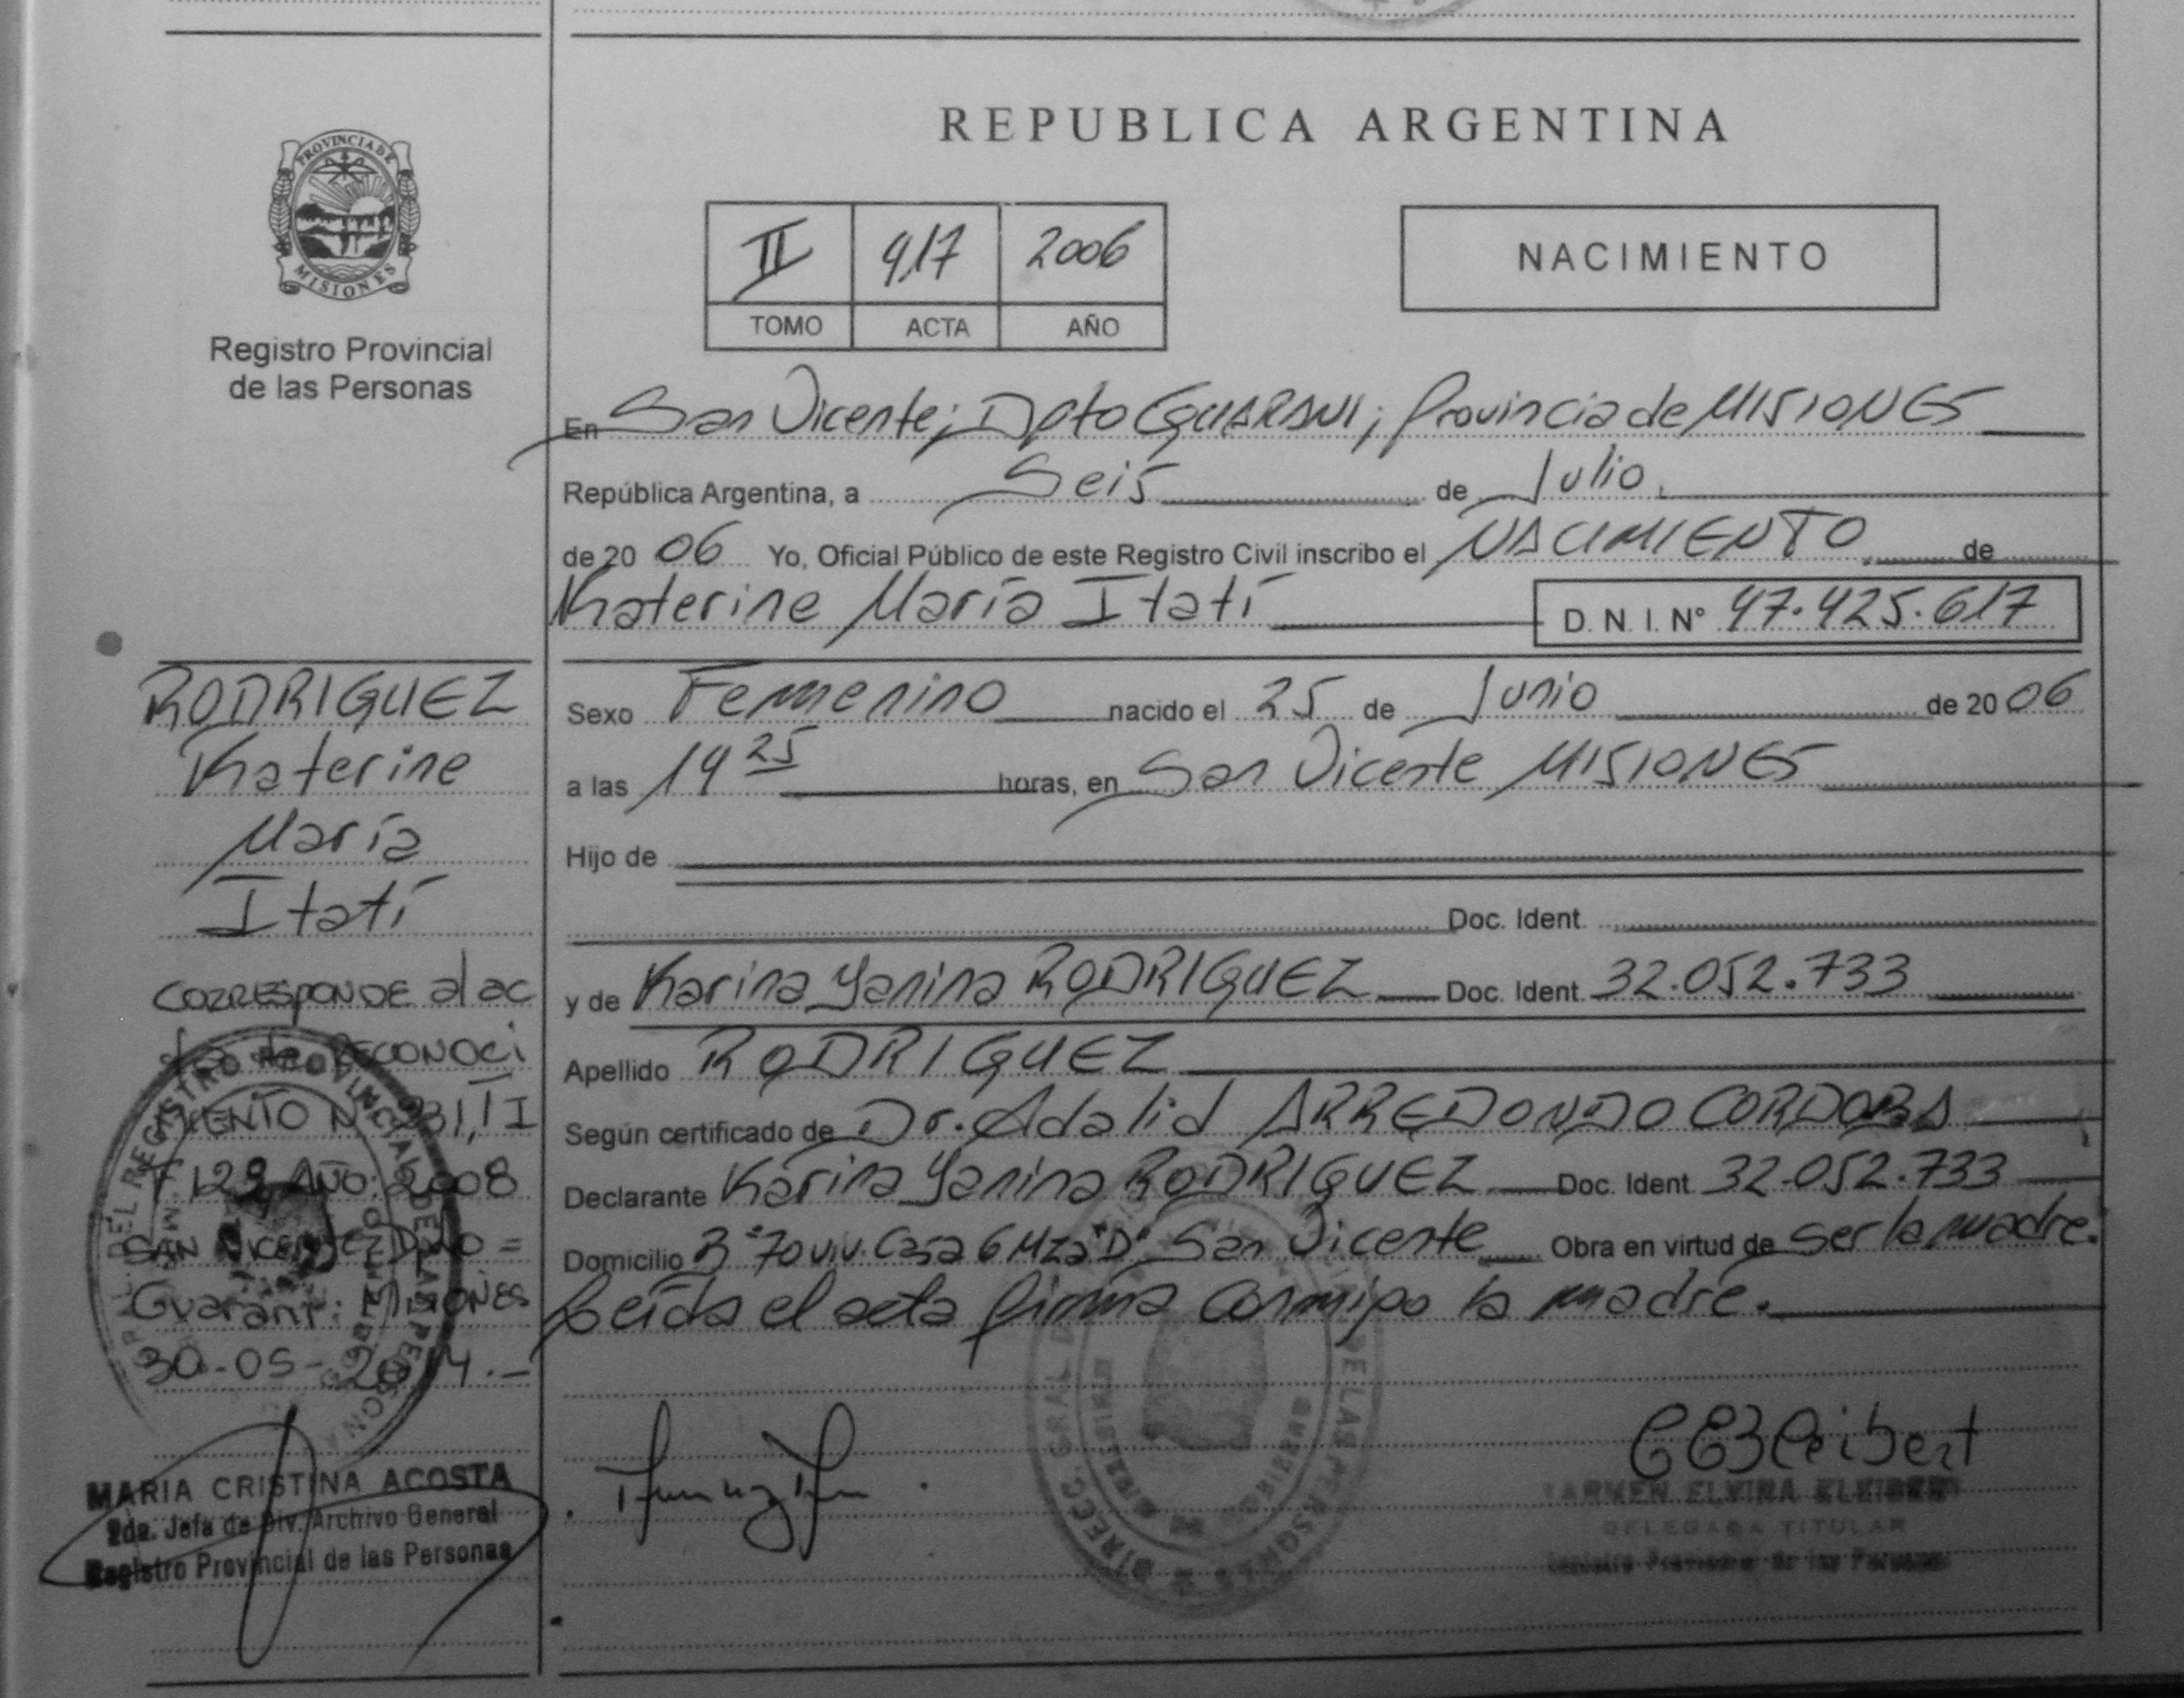 PROVINCIA DE
MISIONES
Registro Provincial
de las Personas
REPUBLICA ARGENTINA
II 417 2006
TOMO ACTA AÑO
NACIMIENTO
En San Vicente; Dpto GUARANI; Provincia de MISIONES
República Argentina, a Seis de Julio
de 2006 Yo, Oficial Público de este Registro Civil inscribo el NACIMIENTO de
Katerine María Itatí D. N. I. Nº 47.425.617
Sexo Femenino nacido el 25 de Junio de 2006
a las 14 25 horas, en San Vicente MISIONES
Hijo de
Doc. Ident.
y de Karina Yanina RODRIGUEZ Doc. Ident. 32.052.733
Apellido RODRIGUEZ
Según certificado de Dr. Adalid ARREDONDO CORDOBA
Declarante Karina Yanina RODRIGUEZ Doc. Ident. 32.052.733
Domicilio B° 70 viv. Casa 6 Mza "D" San Vicente Obra en virtud de ser la madre.
Leída el acta firma conmigo la madre.
RODRIGUEZ
Katerine
María
Itatí
CORRESPONDE al ac
ta de RECONOCI
MIENTO N° 231, T I
F 129 Año: 2008
SAN VICENTE Dpto =
Guaraní: MISIONES
30-05-2014.-
MARIA CRISTINA ACOSTA
2da. Jefa de Div. Archivo General
Registro Provincial de las Personas
CARMEN ELVIRA KLEIBERT
DELEGADA TITULAR
Registro Provincial de las Personas